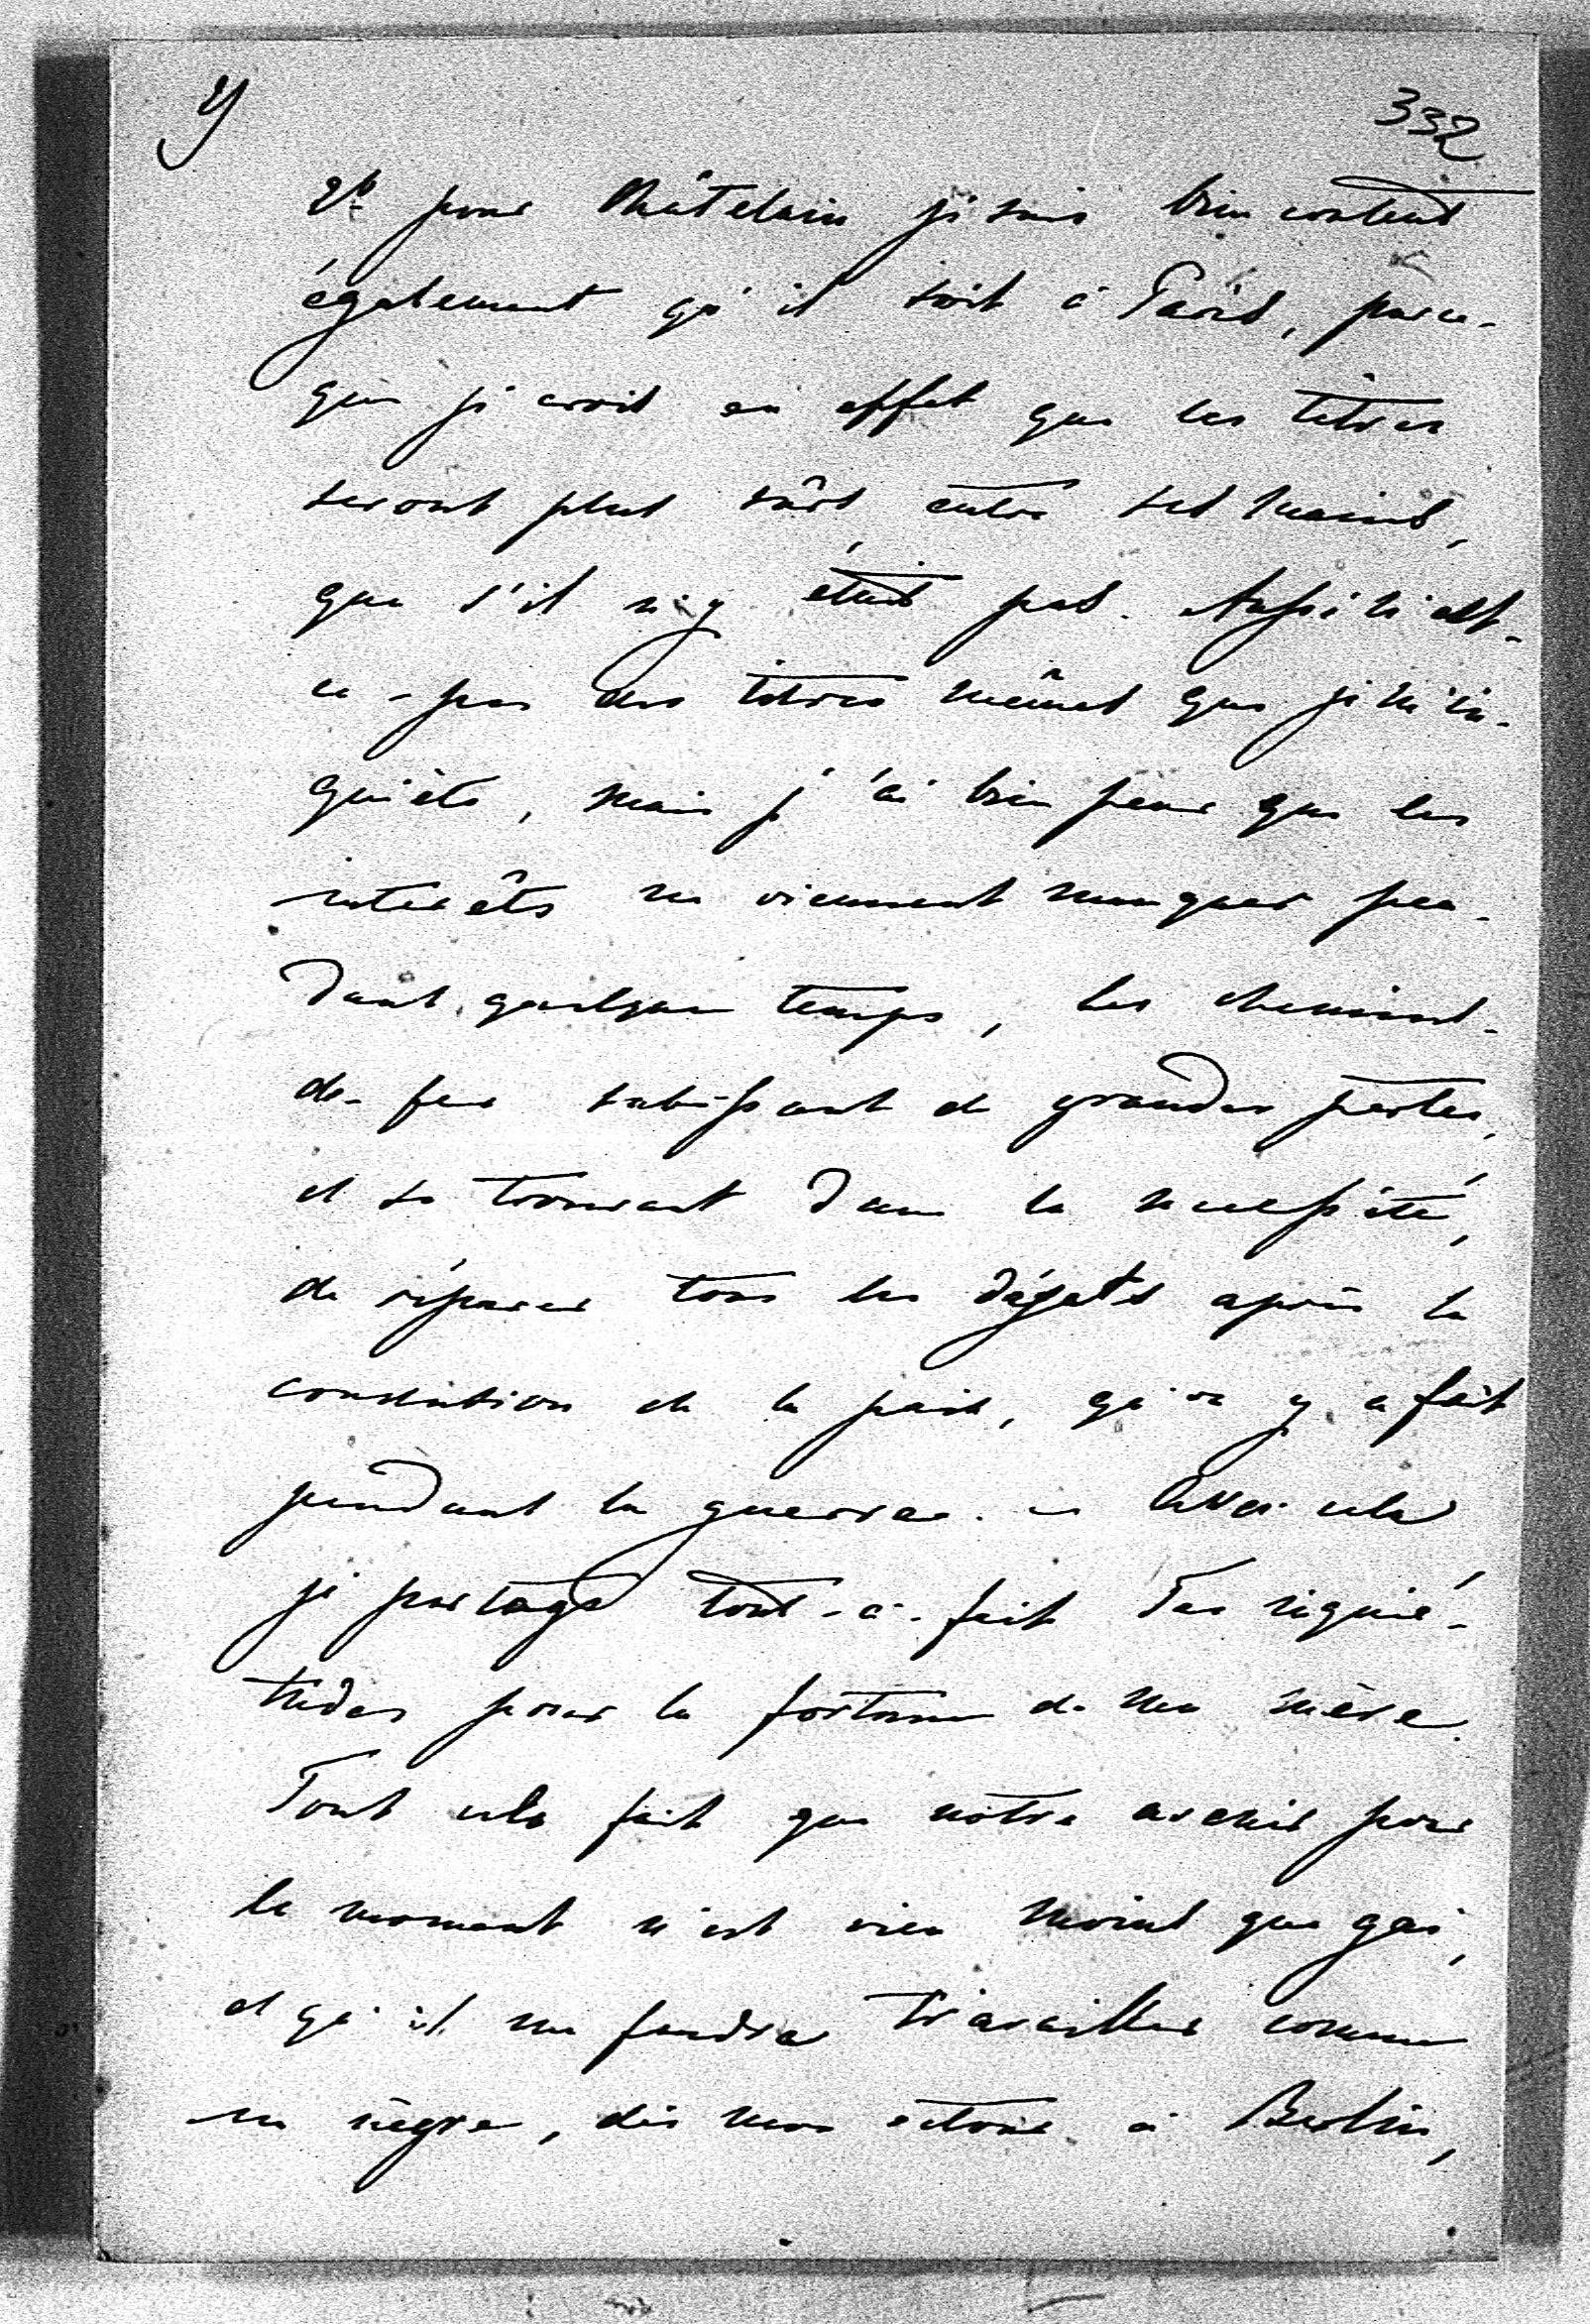 332
pour Châtelain je suis bien content
également qu'il soit à Paris, parce-
que je crois en effet que les titres
seront plus sûrs entre ses mains,
que s'il n'y était pas. Aussi n'est-
ce-pas des titres mêmes que je m'in-
quiète, mais j'ai bien peur que les
intérêts ne viennent manquer pen-
dant quelque temps, les chemins-
de-fer subissant de grandes pertes,
et se trouvant dans la necessité,
de réparer tous les dégats après la
de la paix, qu'on y a fait
pendant la guerre. — Avec cela
je partage tout-à-fait Tes inquié-
tudes pour la fortune de ma mère.
Tout cela fait que notre avenir pour
le moment n'est rien moins que gai,
et qu'il me faudra travailler comme
un nègre, dès mon retour à Berlin,